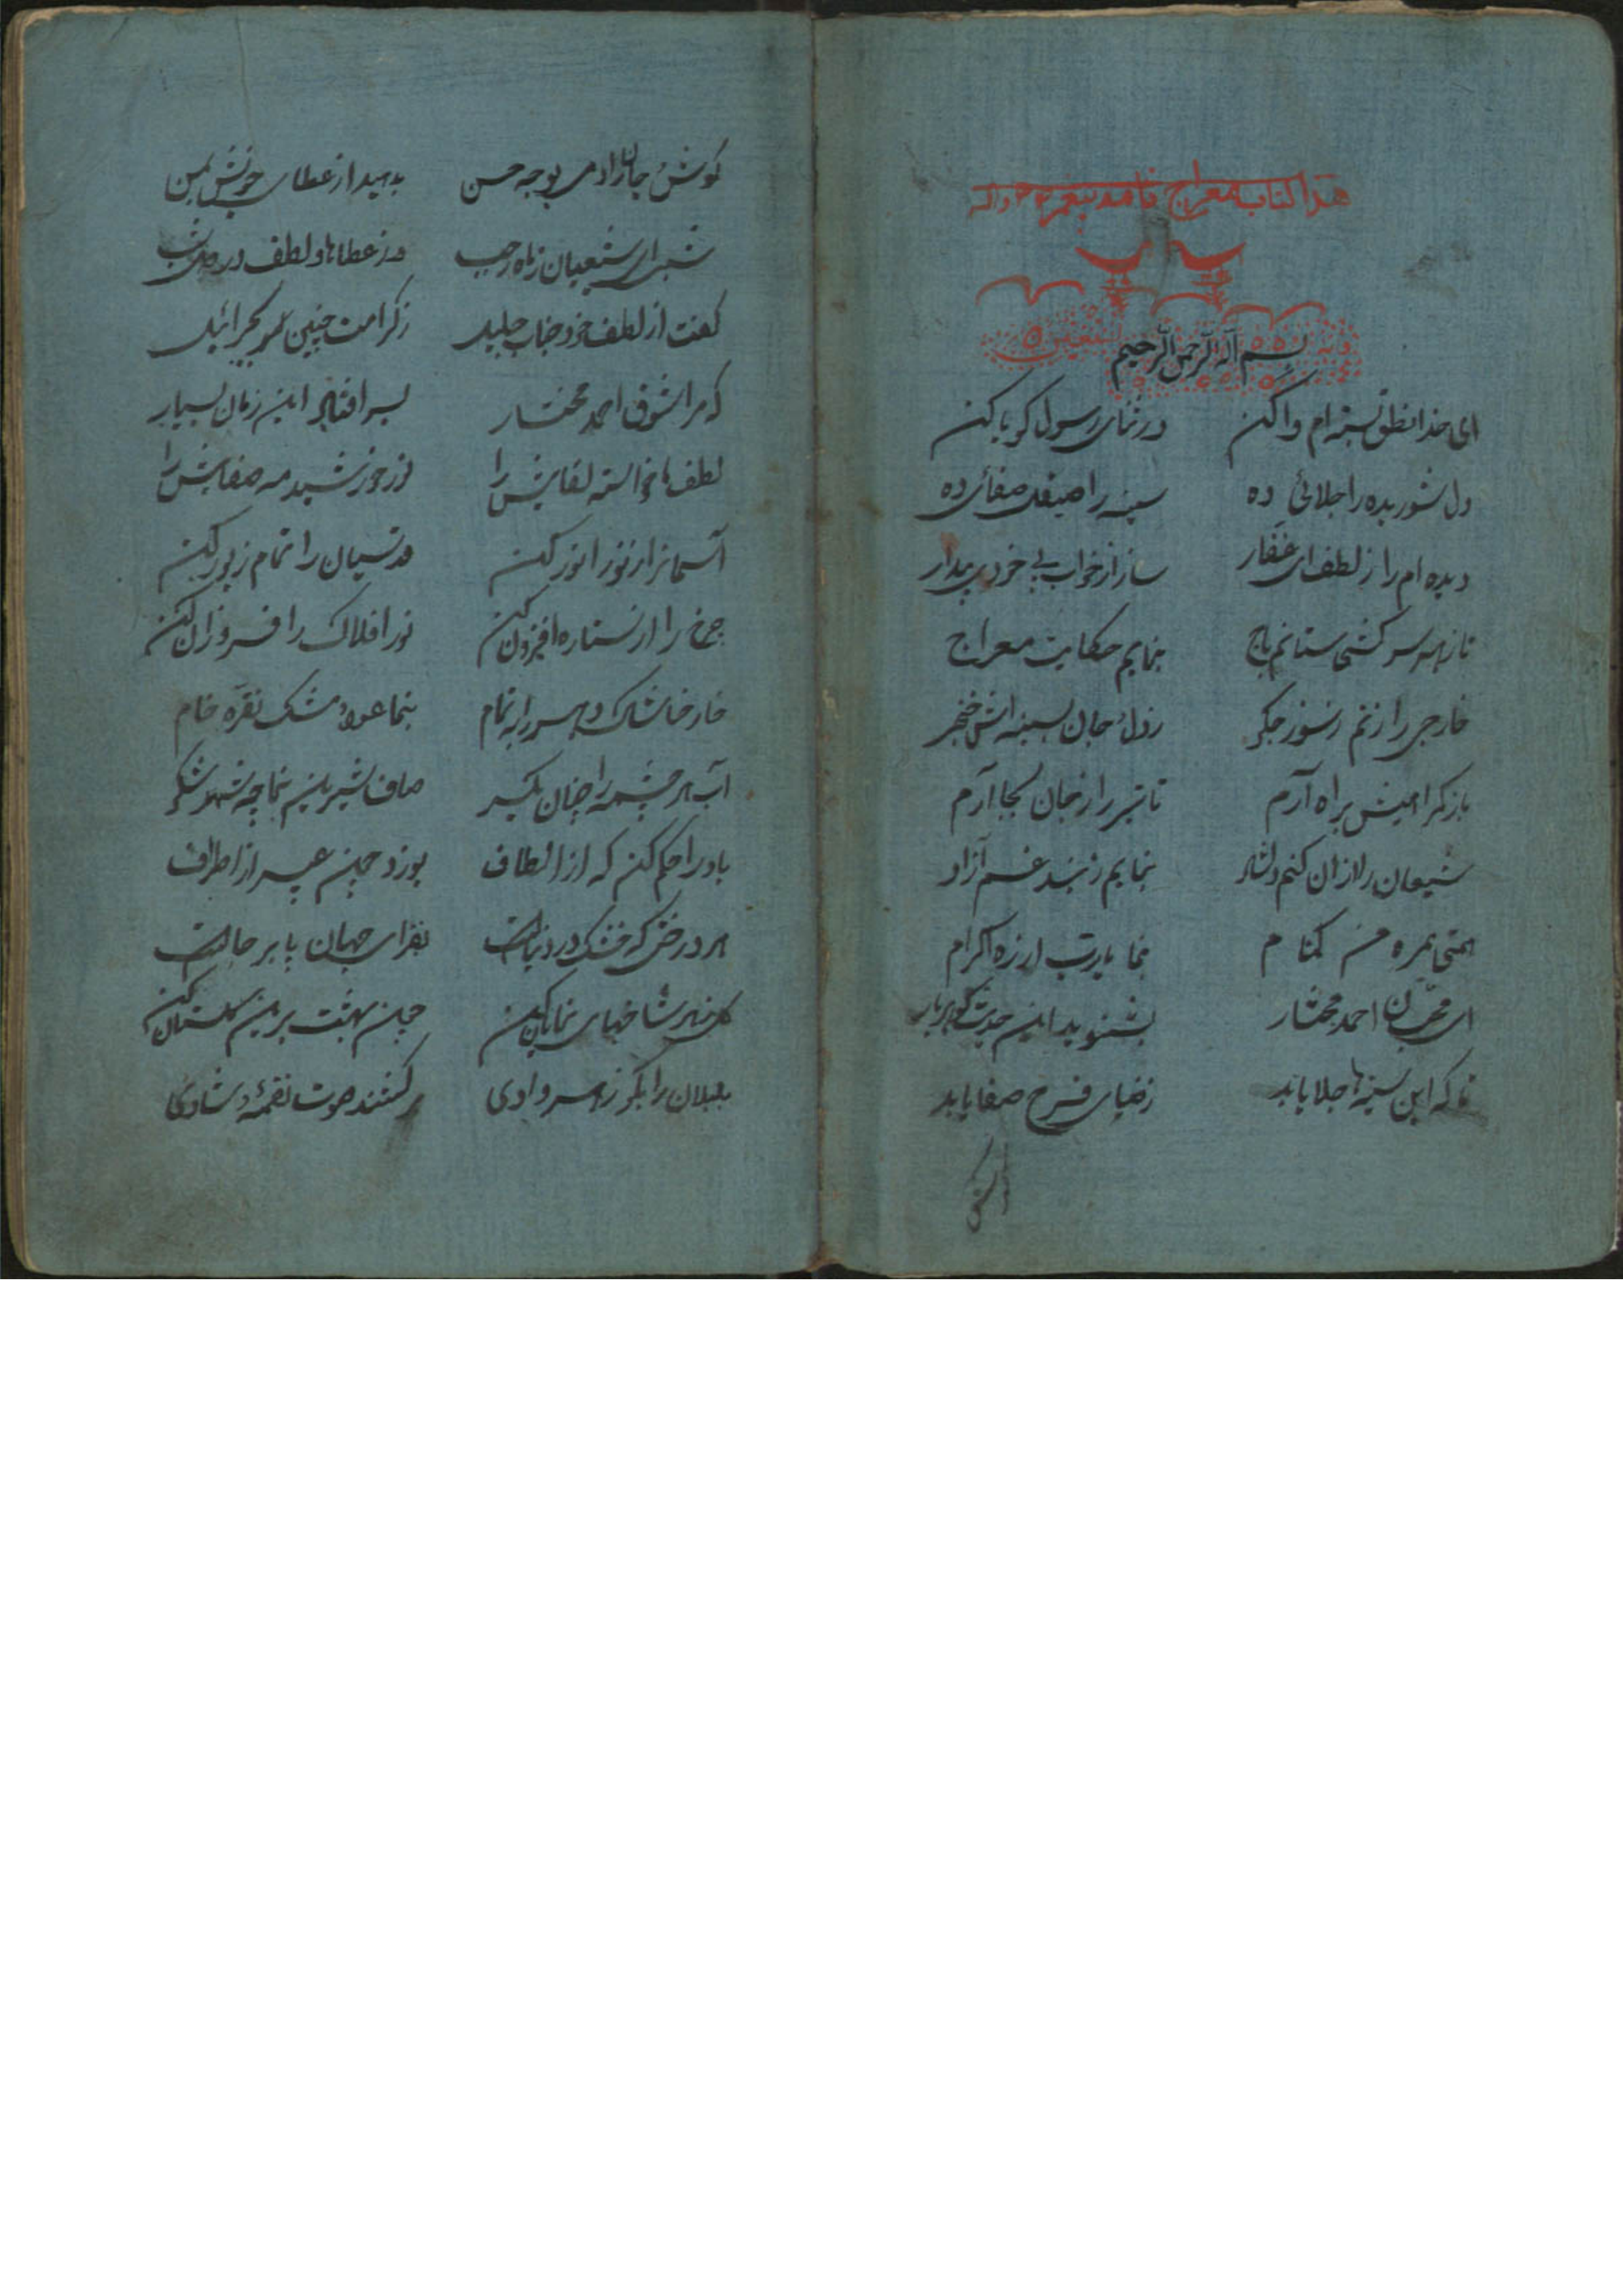 هذا کتاب معراج نامه پیغمبر
وبه نستعین
بسم الله الرحمن الرحیم
ای خدا نطق بسته ام وا کن در ثنای رسول کویا کن
دل شوریده را جلائی ده سینه را صیقل صفائی ده
دیده ام را ز لطف ای غفار ساز از خواب بی خودی بیدار
تا ز هر سرکشی ستانم باج بنمایم حکایت معراج
خارجی را زنم ز سوز جکر بسینه اش خنجر
براه آرم تا تبرا ز جان بجا آرم
شیعان را از ان کنم دلشاد بنمایم ز بند غم آزاد
همتی همره من کمنام بنما یا رب از ره اکرام
ای محبان احمد مختار بشنوید این حدیث کوهر بار
تا که این سینها جلا یابد ز ضیای فرح صفا یابد
کوش
کوش جانرا دمی بوجه حسن بدهید از عطای خویش بمن
شبی ای شیعیان ز ماه رجب وز عطاها و لطف
کفت از لطف خود جناب جلیل ز کرامت چنین بجبرائیل
که مرا شوق احمد مختار بسر افتاده این زمان بسیار
لطف ما خواسته لقایش را نور خورشید مه صفایش را
آسمانرا ز نور انور کن قدسیان را تمام زیور کن
چرخ را از ستاره افزون کن نور افلاک را فروزان کن
خار خاشاک دهر را بتمام بنما عود مشک نقره خام
آب هر چشمه را چنان یکسر صاف شیرین نما چه شهد شکر
باد را حکم کن که از الطاف بوزد چون عبیر از اطراف
هر درختی که خشک در دنیاست بفزای جهان پا بر جاست
کل بهر شاخهای نمایان کن چون بهشت برین کلستان کن
بلبلان را بکو ز هر وادی برکشند صوت نغمهٔ شادی